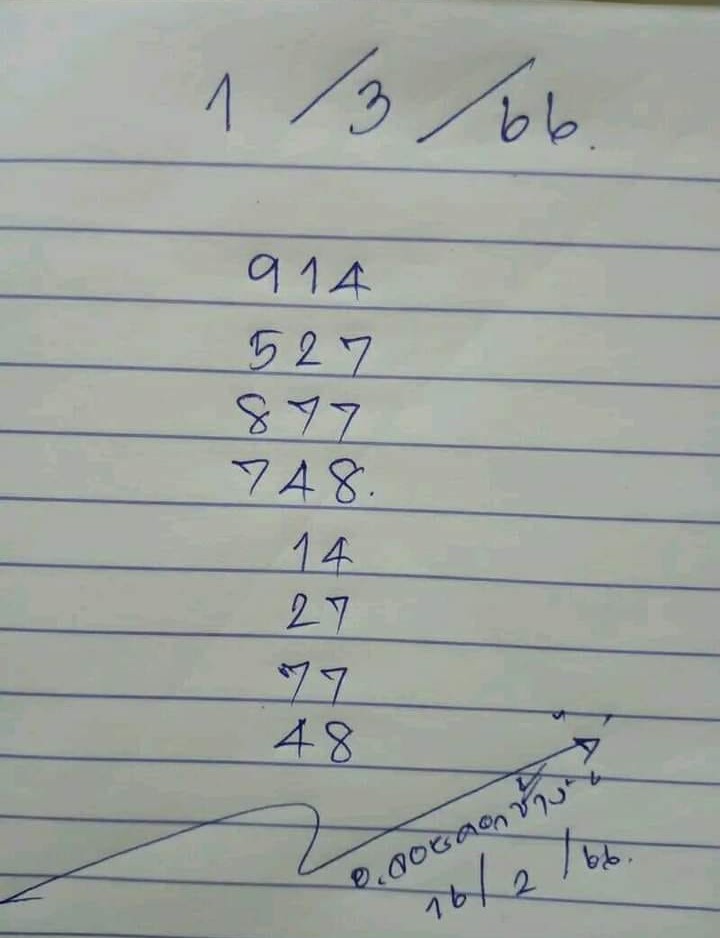 1/3/66.
914
527
877
748.
14
27
77
48
16/2/66.